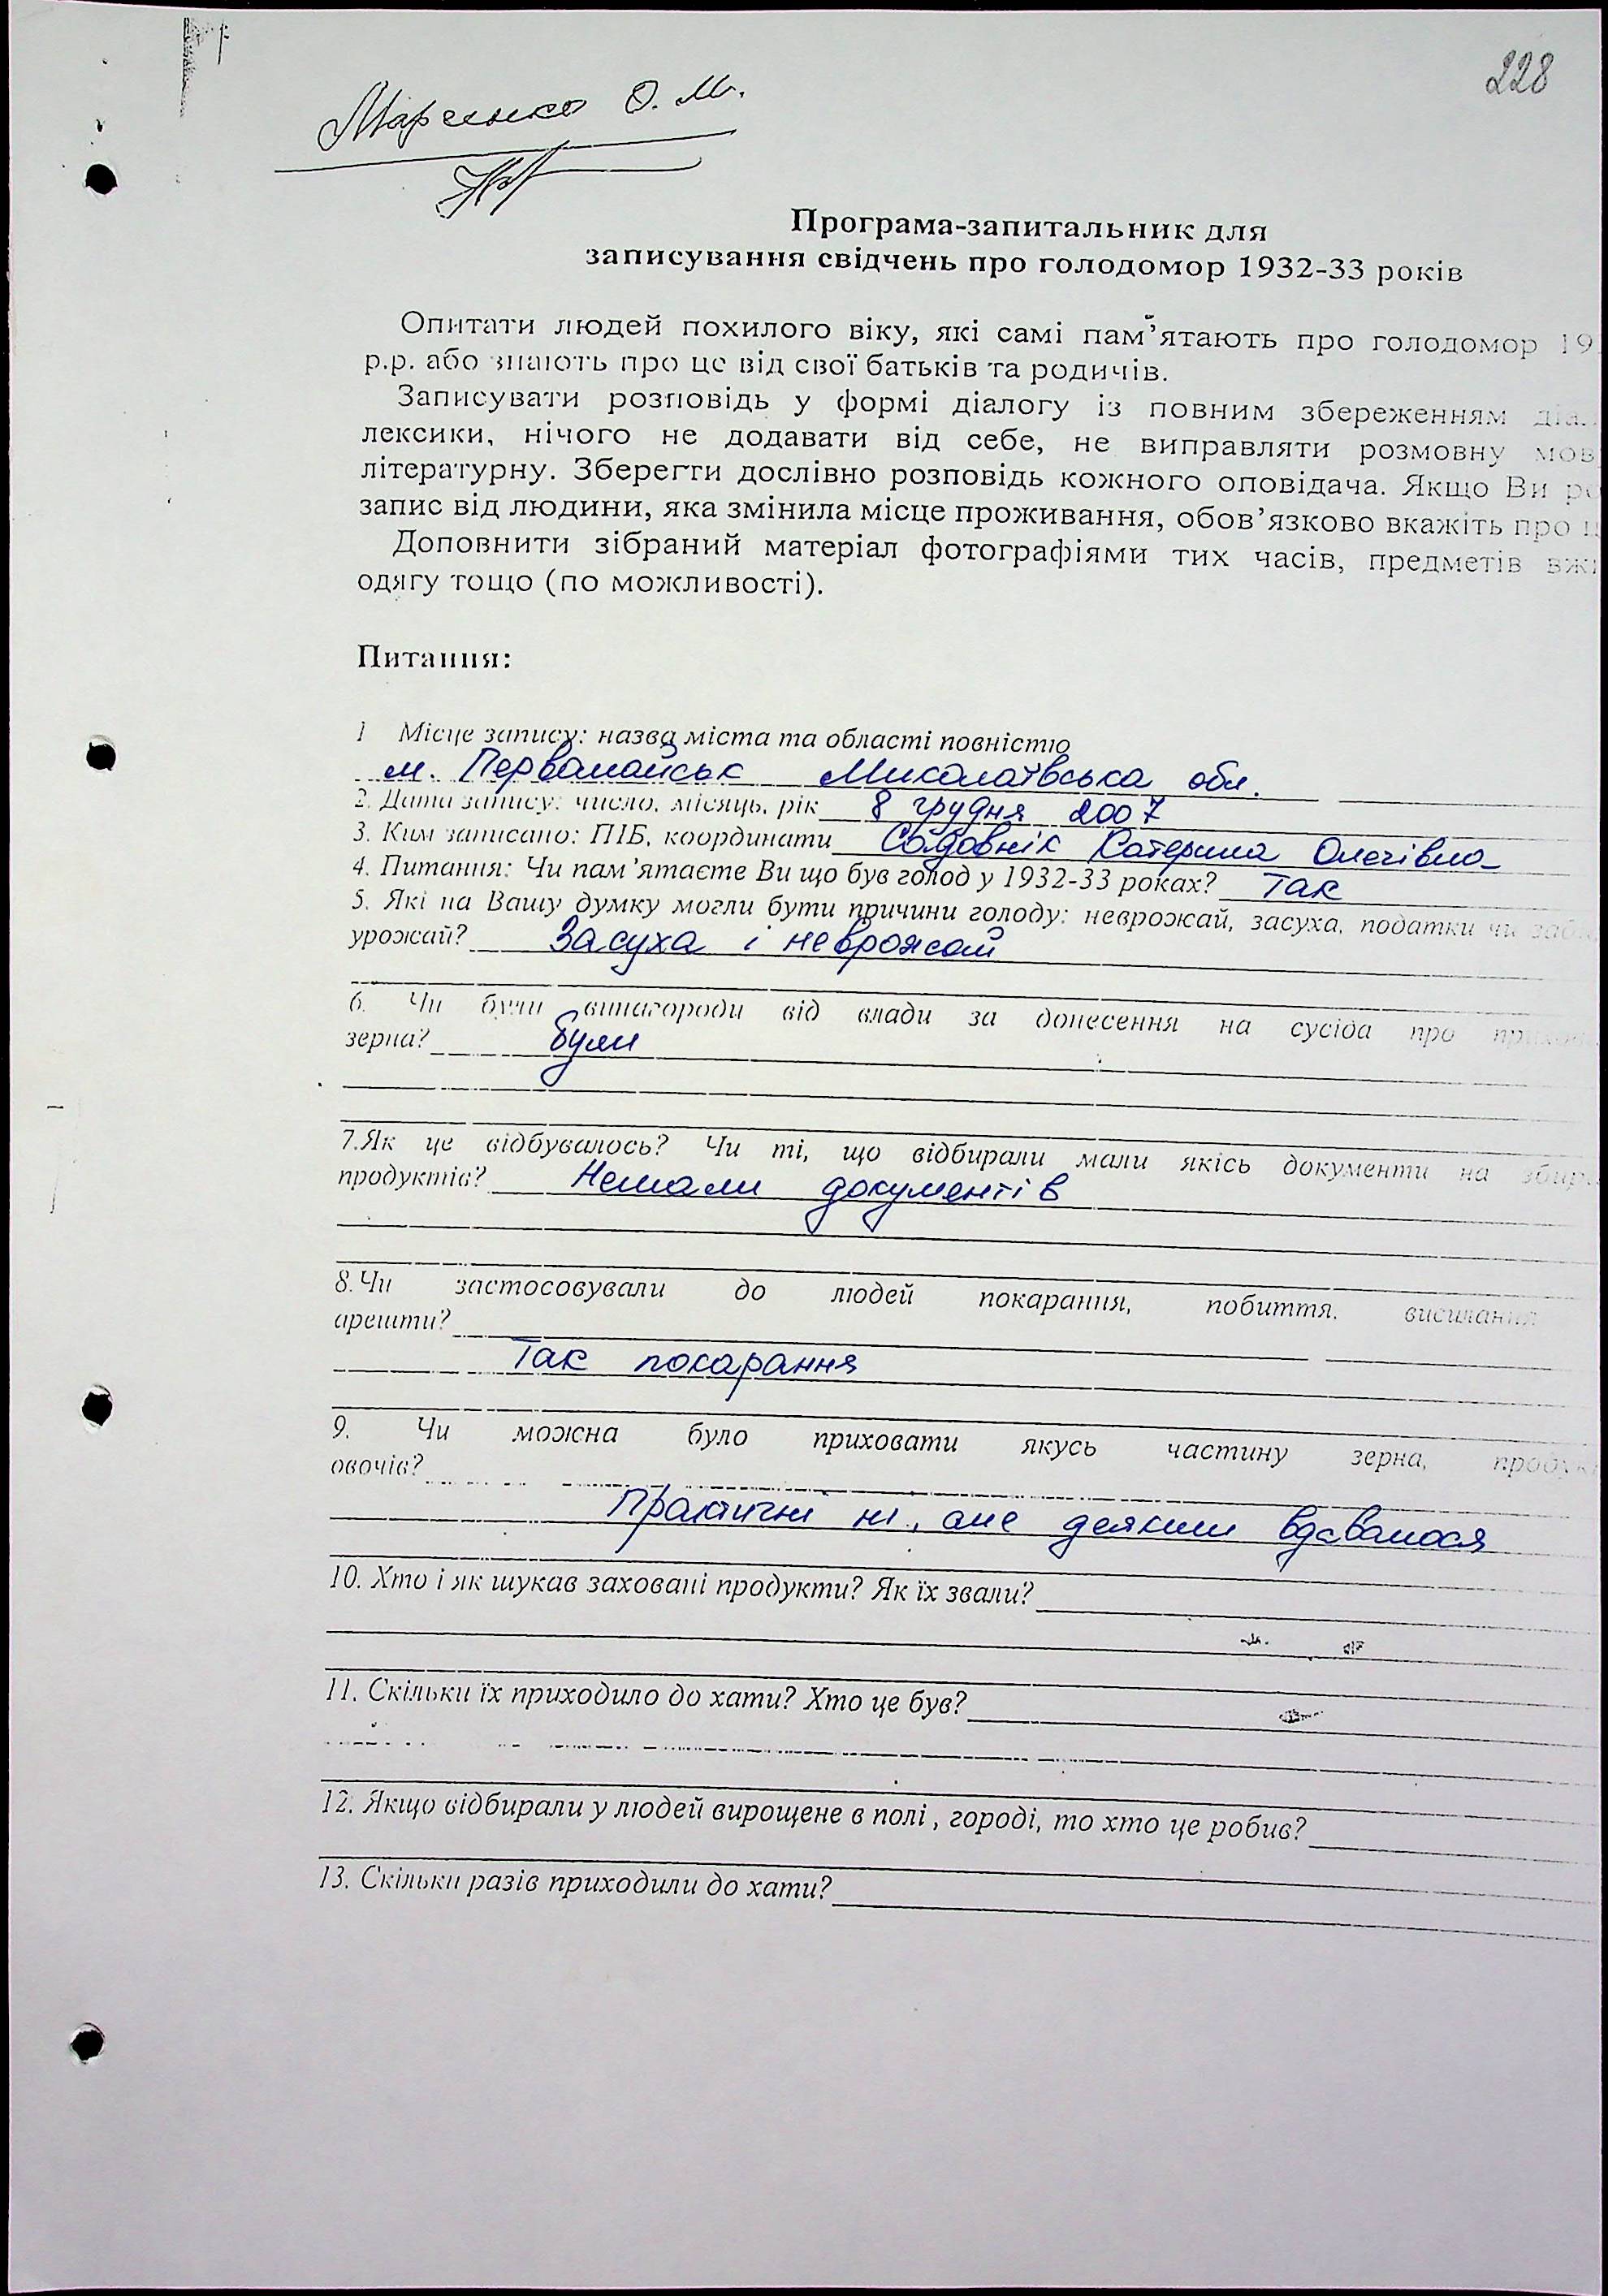 228
Марченко О. М.
Програма-запитальник для
записування свідчень про голодомор 1932-33 років
Опитати людей похилого віку, які самі пам’ятають про голодомор 19
р.р. або знають про це від свої батьків та родичів.
Записувати розповідь у формі діалогу із повним збереженням діал
лексики, нічого не додавати від себе, не виправляти розмовну мов
літературну. Зберегти дослівно розповідь кожного оповідача. Якщо Ви ро
запис від людини, яка змінила місце проживання, обов’язково вкажіть про ц
Доповнити зібраний матеріал фотографіями тих часів, предметів вжи
одягу тощо (по можливості).
Питання:
1 Місце запису: назва міста та області повністю
м. Первомайськ Миколаївська обл.
2. Дата запису: число, місяць, рік 8 грудня 2007
3. Ким записано: ПІБ, координати Садовнік Катерина Олегівна
4. Питання: Чи пам’ятаєте Ви що був голод у 1932-33 роках? Так
5. Які на Вашу думку могли бути причини голоду: неврожай, засуха, податки чи заб
урожай? Засуха і неврожай
6. Чи були винагороди від влади за донесення на сусіда про прихов
зерна? були
7.Як це відбувалось? Чи ті, що відбирали мали якісь документи на збира
продуктів? Немали документів
8.Чи застосовували до людей покарання, побиття, висилання
арешти?
Так покарання
9. Чи можна було приховати якусь частину зерна, продук
овочів?
Практичні ні, але деяким вдавалося
10. Хто і як шукав заховані продукти? Як їх звали?
11. Скільки їх приходило до хати? Хто це був?
12. Якщо відбирали у людей вирощене в полі , городі, то хто це робив?
13. Скільки разів приходили до хати?